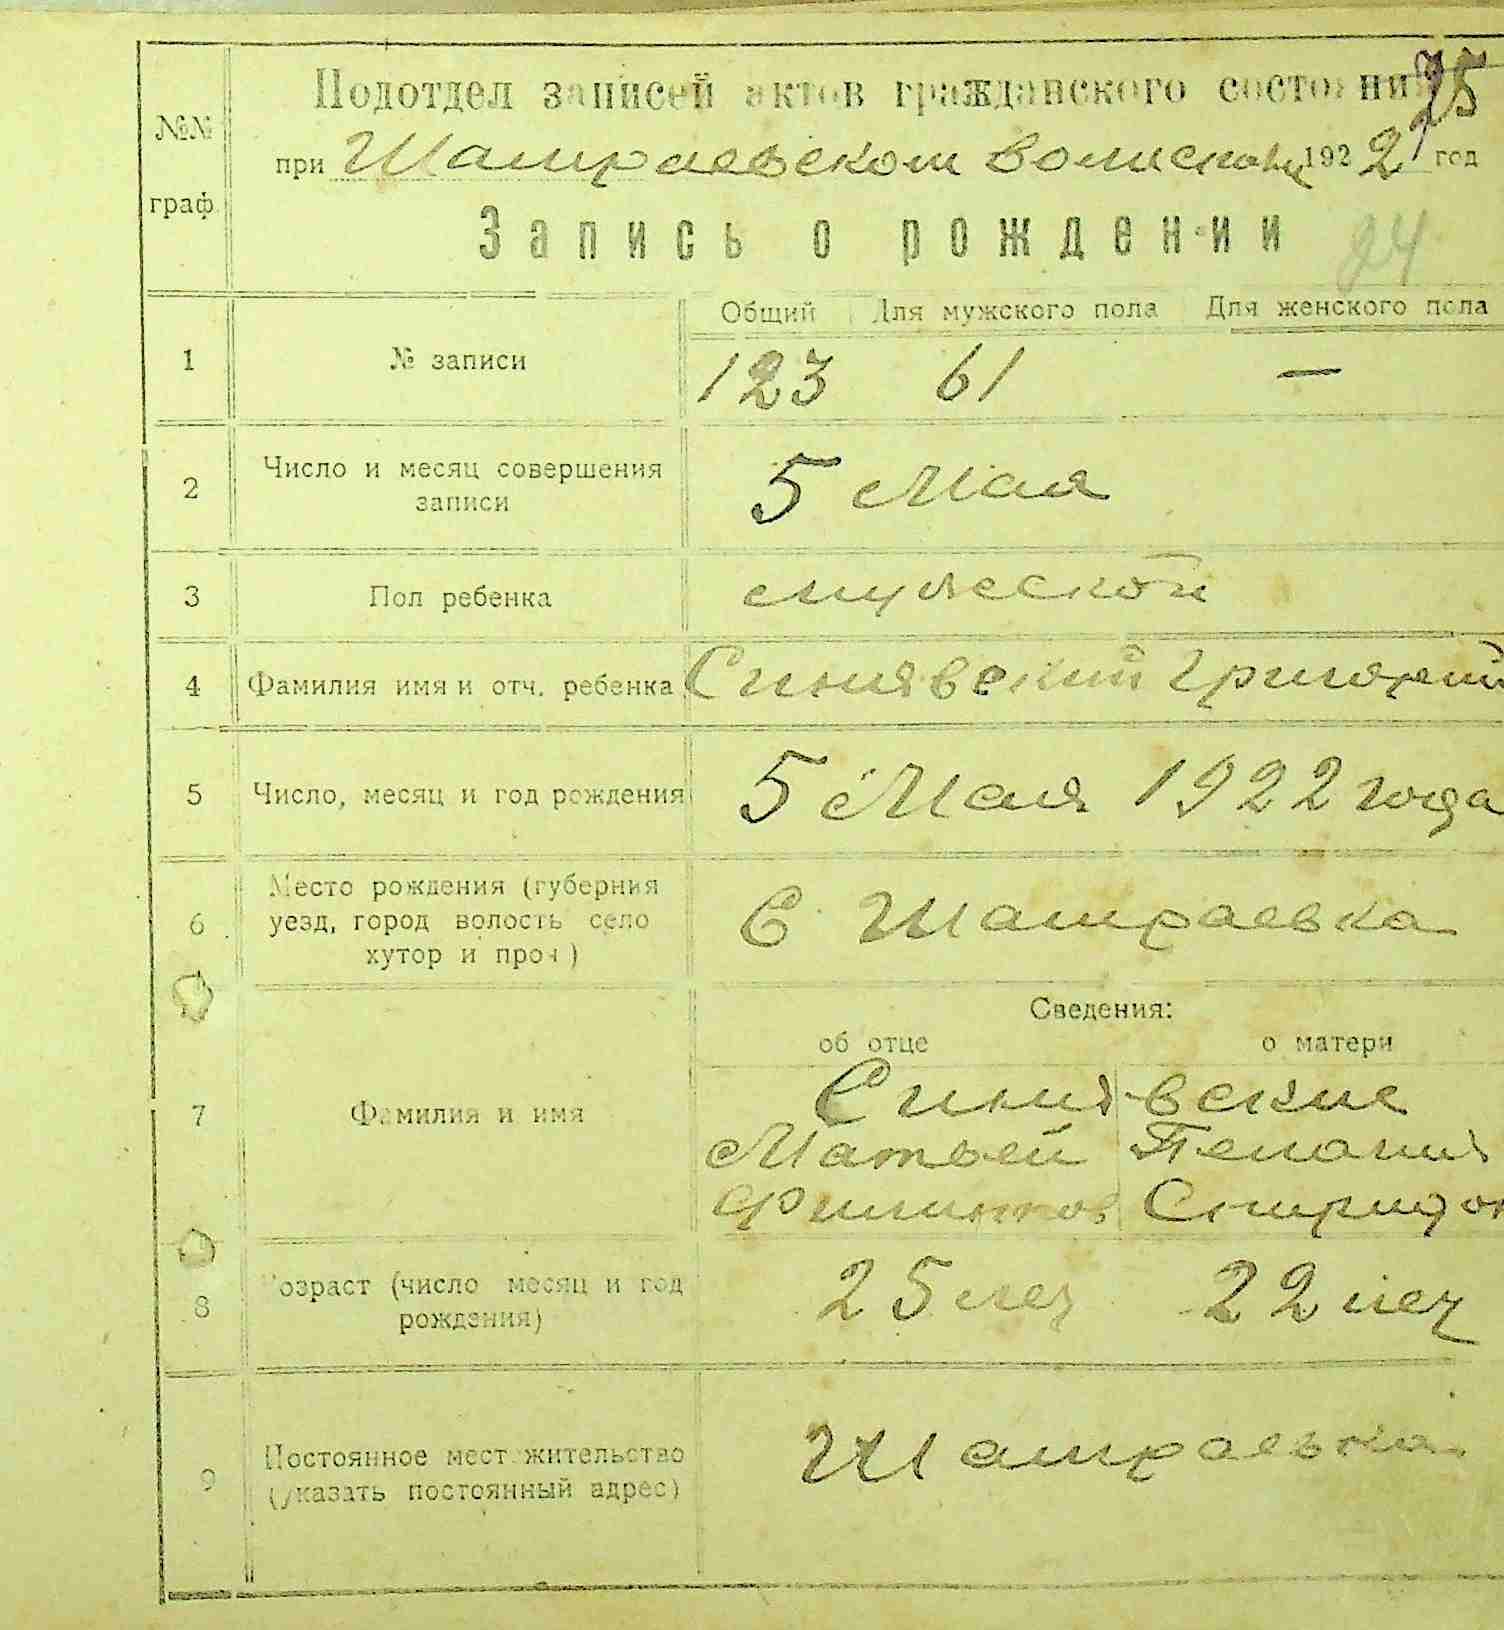 75
№№ граф.
Подотдел записей актов гражданского состояния
при Шамраевском Волисполк 1922 год
Запись о рождении
24
Общий Для мужского пола Для женского пола
1 № записи 123 61 —
2 Число и месяц совершения
записи
5 Мая
3 Пол ребенка мужеской
4 Фамилия имя и отч. ребенка Синявский Григорий
5 Число, месяц и год рождения 5 Мая 1922 года
6 Место рождения (губерния
уезд, город волость село
хутор и проч)
С. Шамраевка
Сведения:
об отце о матери
7 Фамилия и имя
Синявские
Матвей Пелагия
Филиппов Спиридон
8 Возраст (число месяц и год
рождения)
25 лет 22 лет
9 Постоянное мест. жительство
(указать постоянный адрес)
Шамраевка